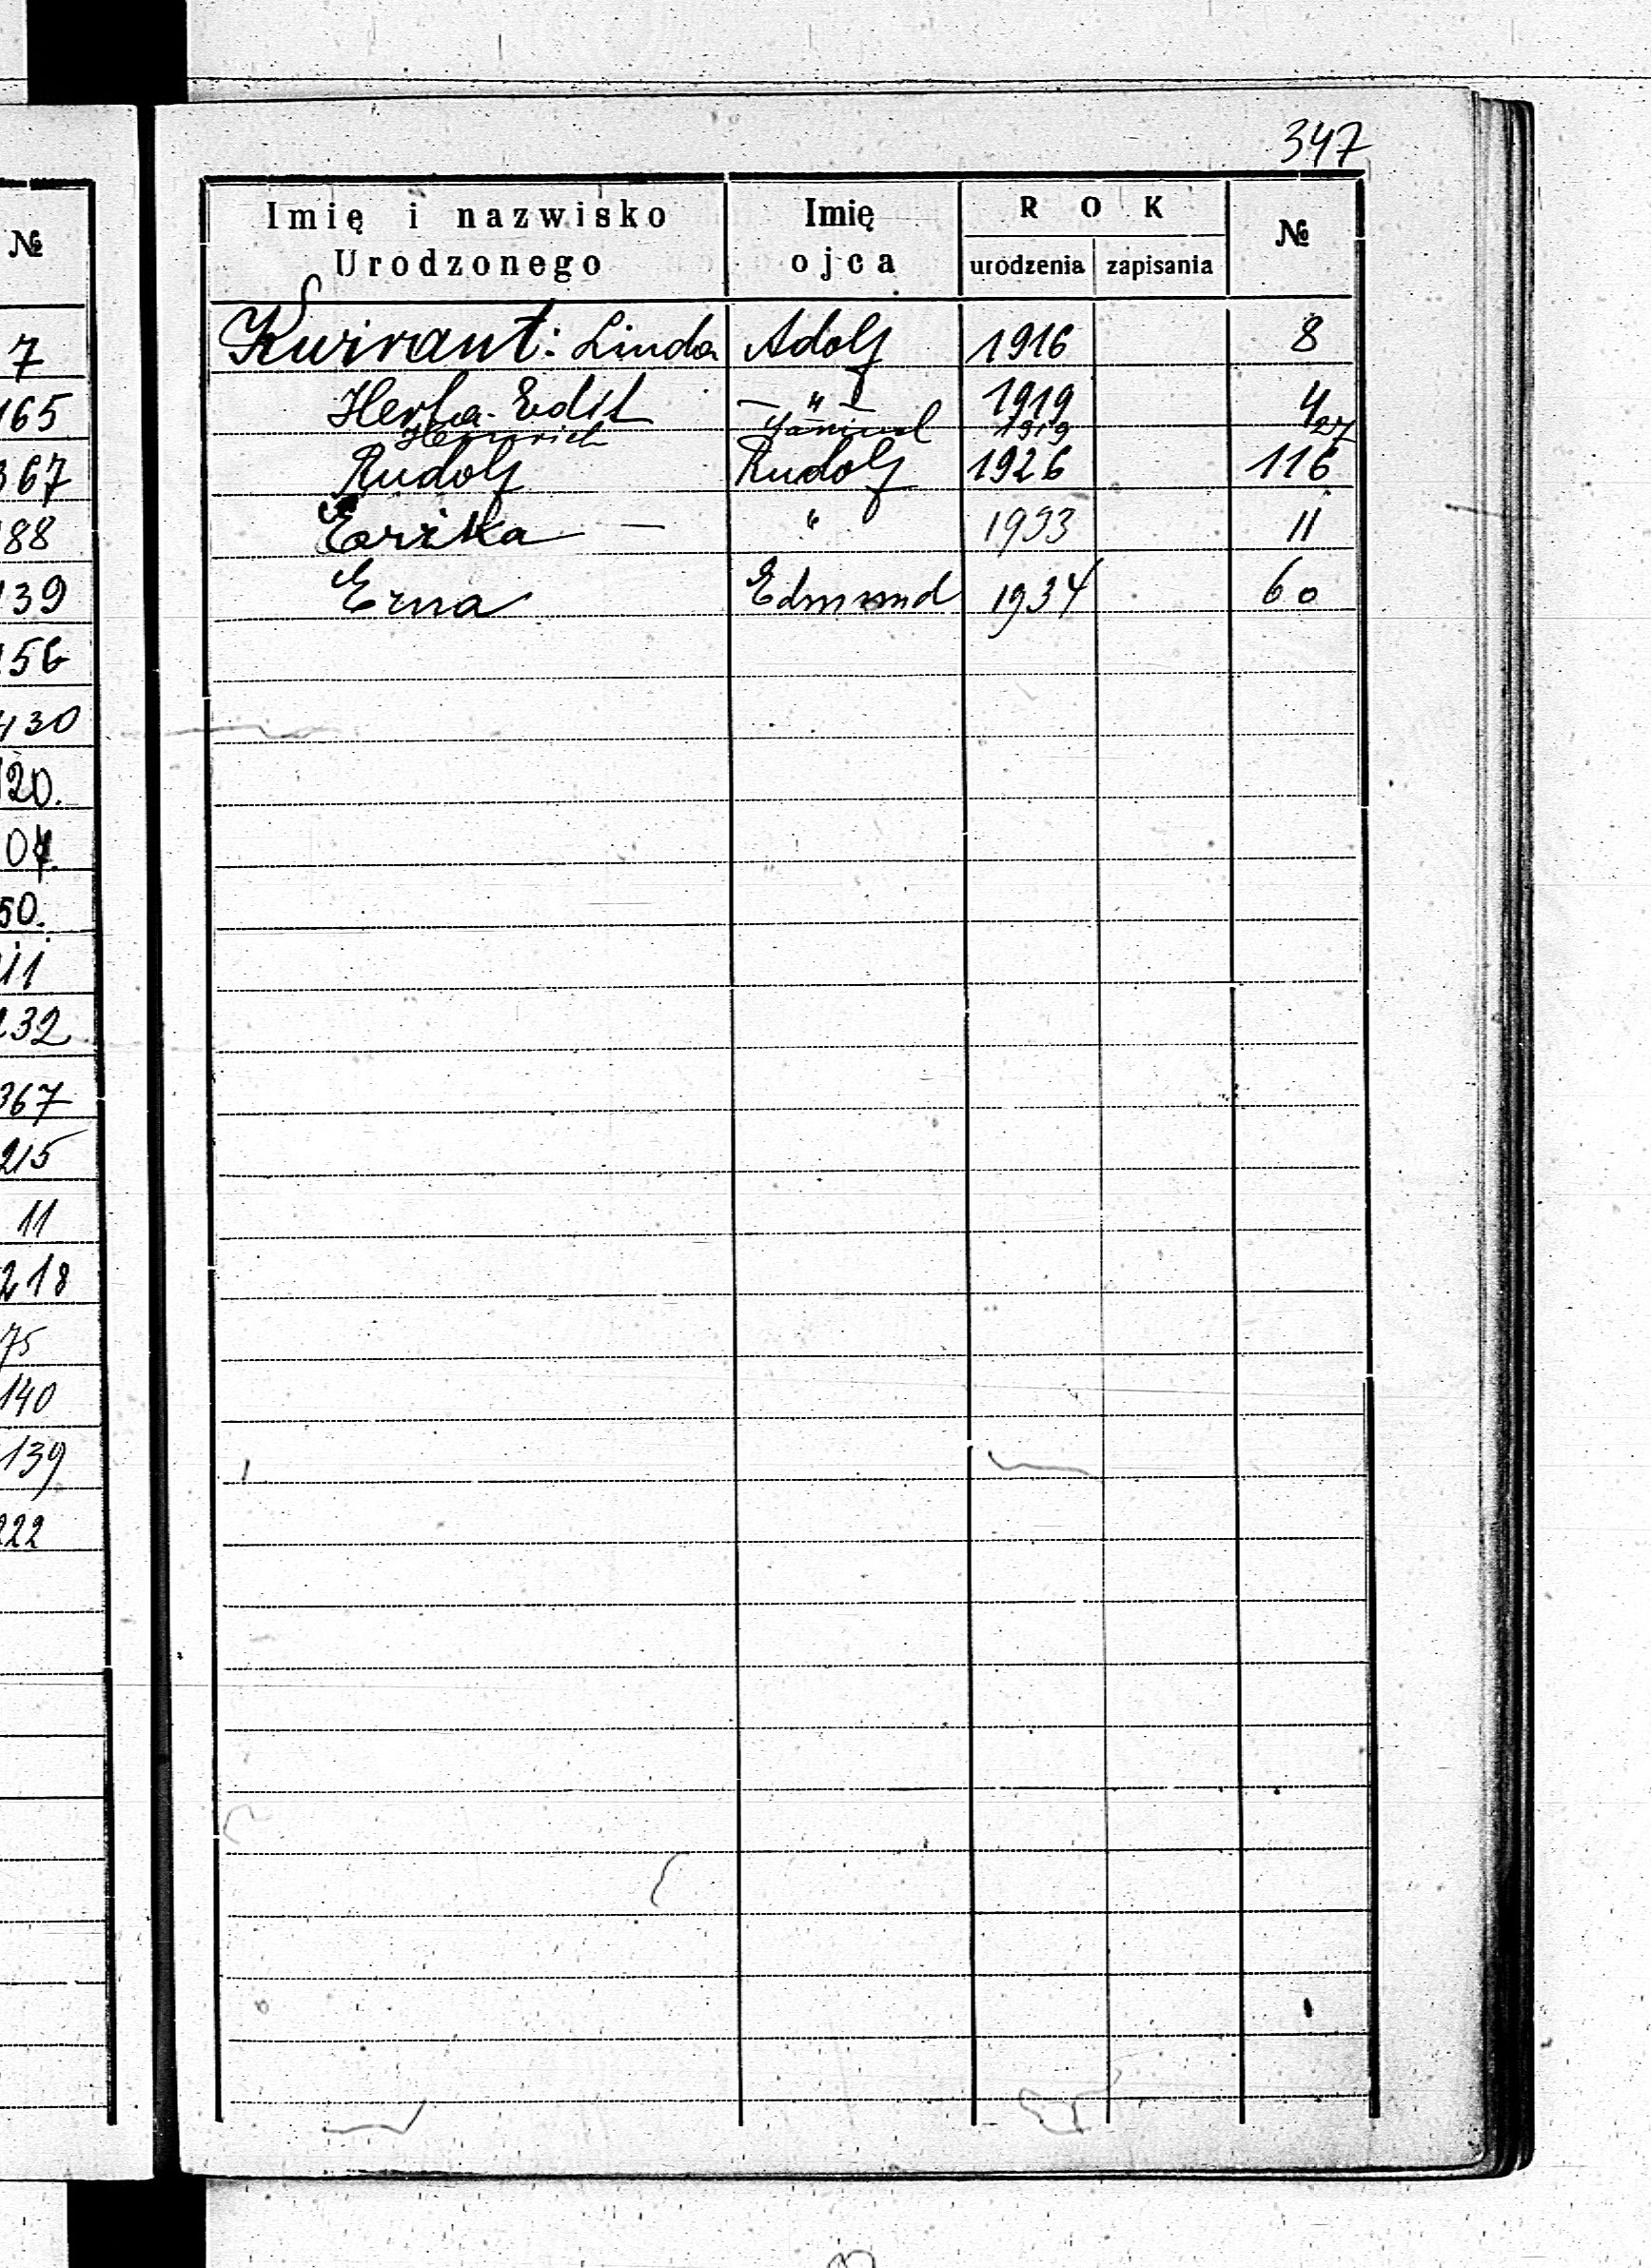 347
№
7
165
367
88
139
156
430
120.
04.
50.
11
232
367
215
11
218
75
140
139
222
Imię i nazwisko Urodzonego
Imię ojca
ROK
urodzenia zapisania
№
Kurrant: Linda Adolf 1916 8
Herta-Edit — " — 1919 4
Heinrich 1919 27
Rudolf Rudolf 1926 116
Eerika — " 1933 11
Erna Edmund 1934 60